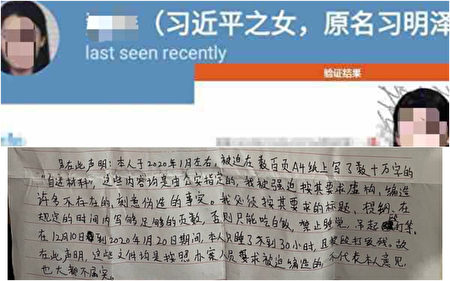 （习近平之女，原名习明泽
last seen recently
验证结果
在此声明：本人于2020年1月左右，被迫在数百页A4纸上写了数十万字的
"自述材料"，这些内容均是由公安指定的，我被强迫按其要求虚构、编造
许多不存在的、刻意伪造的事实。我必须按其要求的标题、提纲，在
规定的时间内写够足够的页数，否则只能吃白饭，禁止睡觉，吊起打等，
在12月10日到2020年1月20日期间，本人只睡了不到30小时，且被殴打致残。故
在此声明，这些文件均是按照办案人员要求被迫编造的，不代表本人意见
也大都不属实。